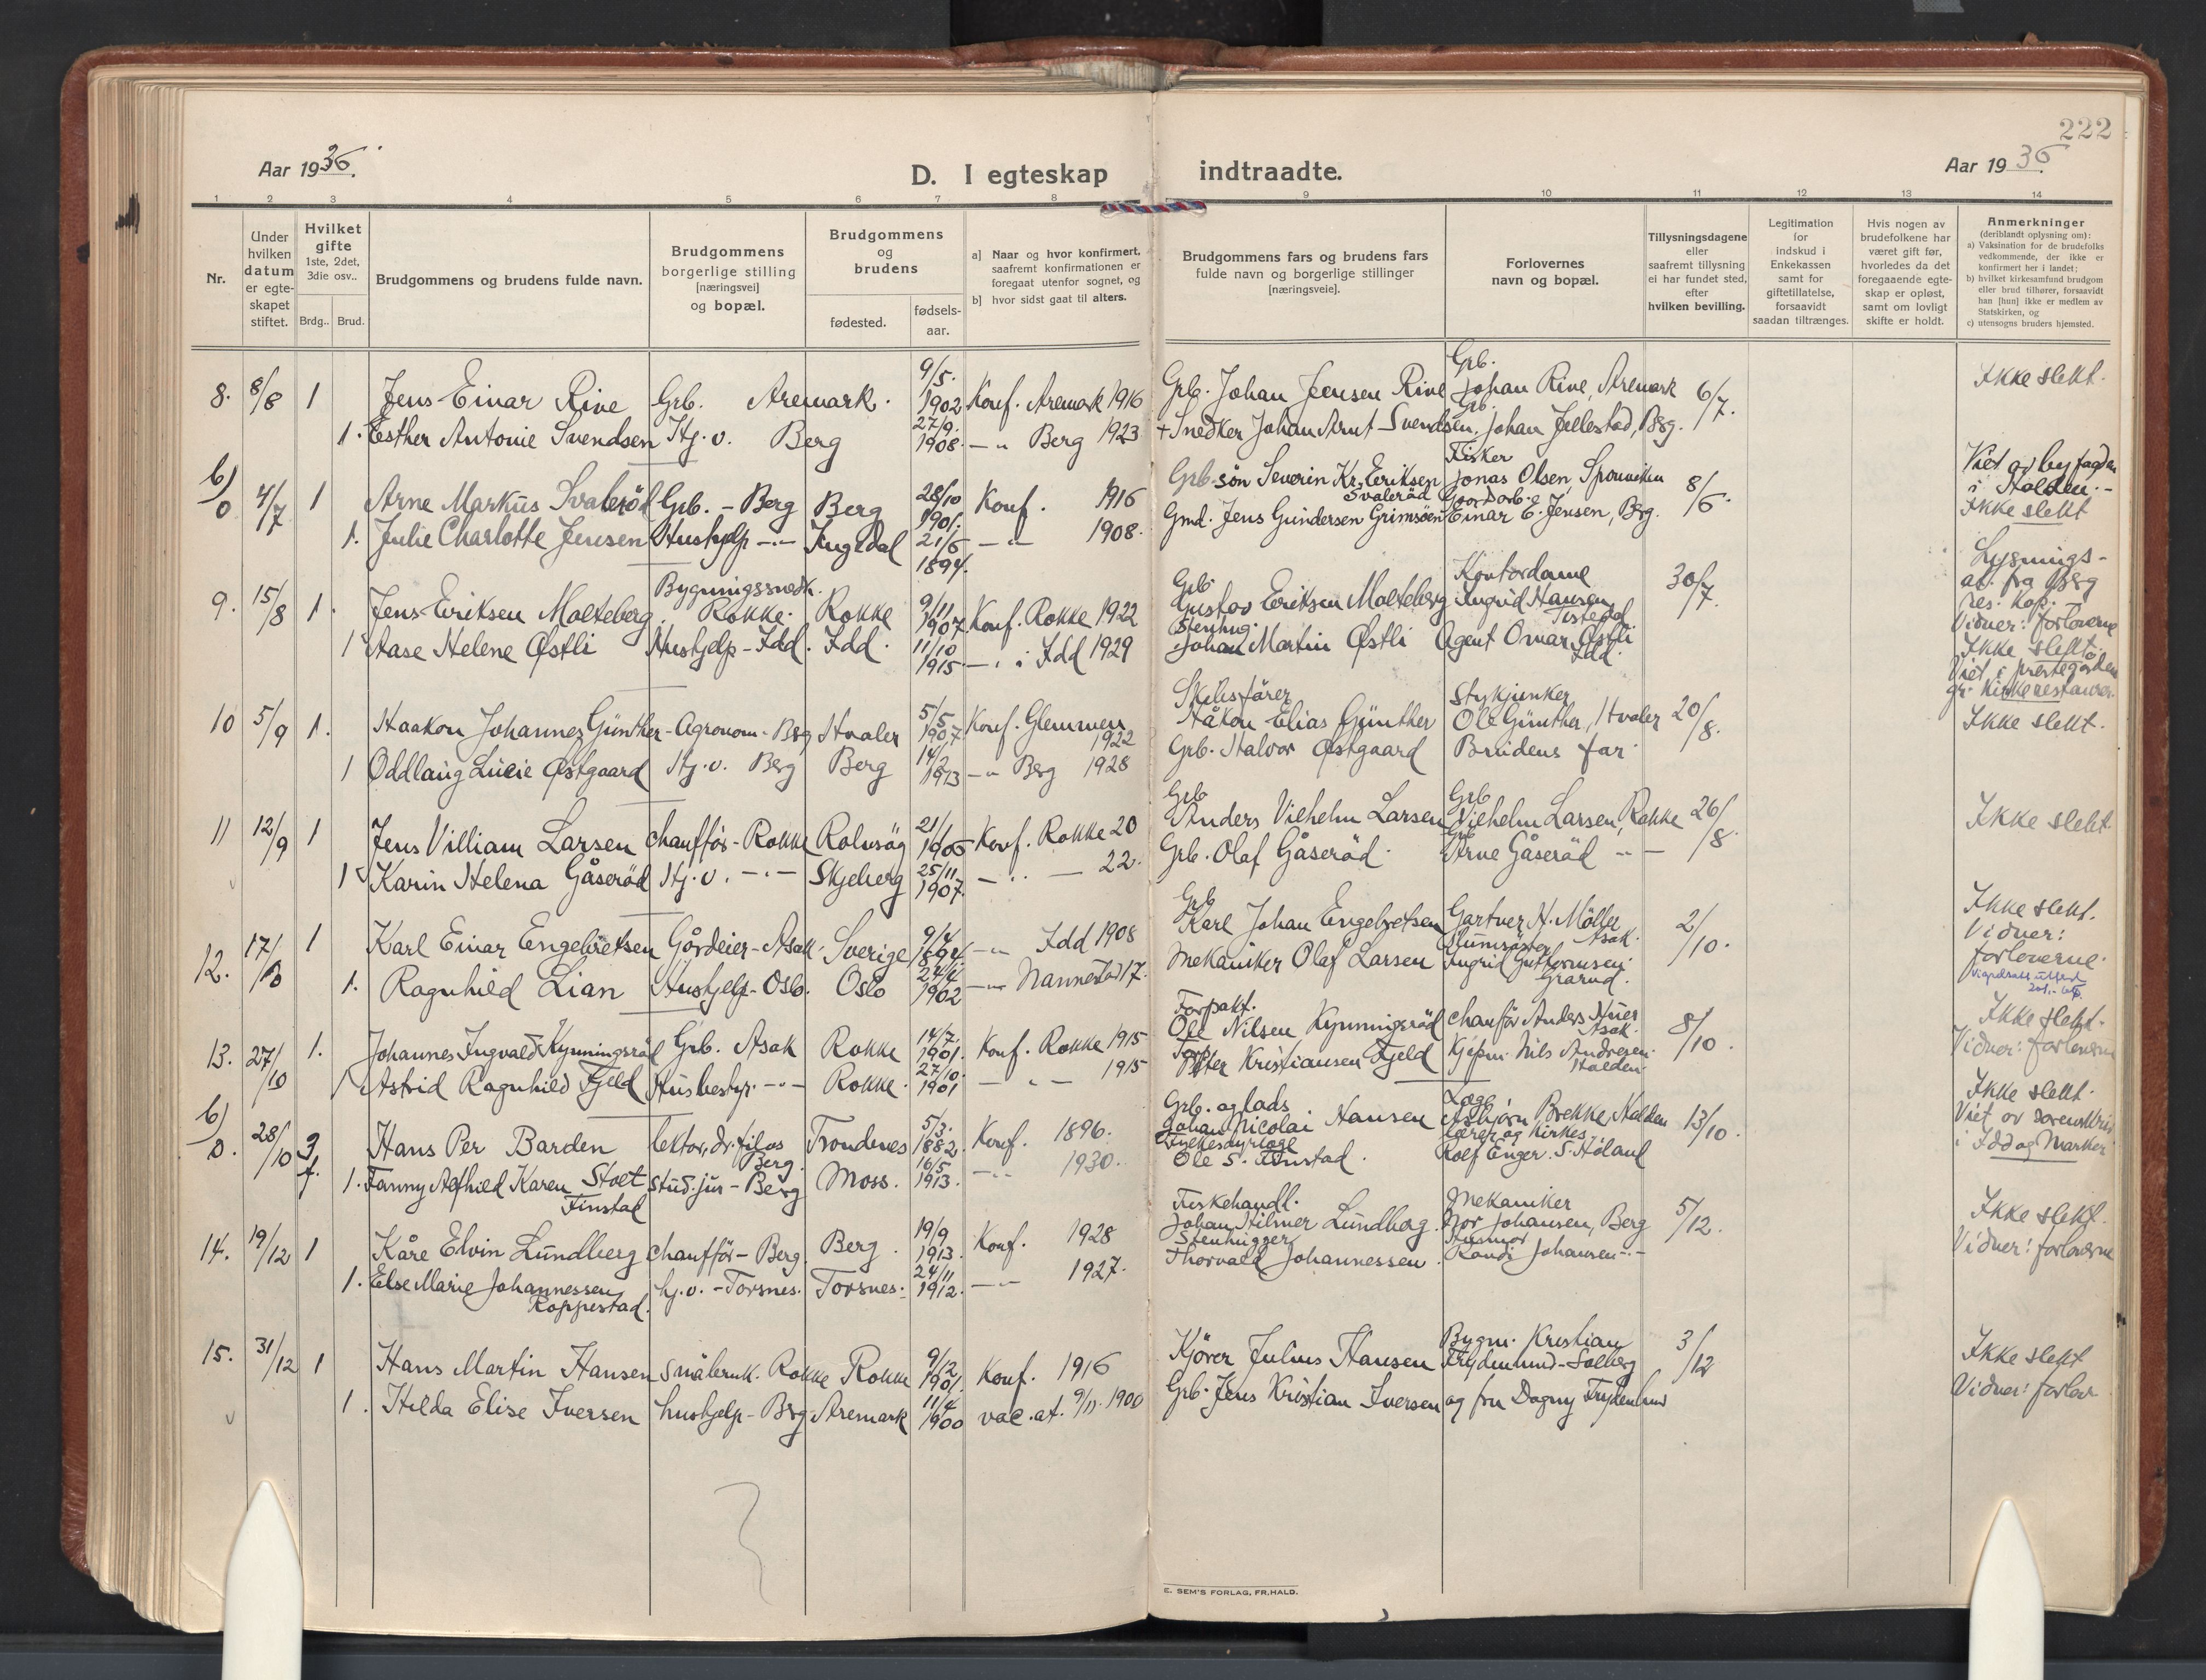 222
Aar 1936.
D. I egteskap indtraadte.
Aar 1936.
1 2 3 4 5 6 7 8 9 10 11 12 13 14
Nr.
Under hvilken datum er egte- skapet stiftet.
Hvilket gifte 1ste, 2det, 3die osv..
Brdg.. Brud.
Brudgommens og brudens fulde navn.
Brudgommens borgerlige stilling [næringsvei] og bopæl.
Brudgommens og brudens
fødested.
fødsels- aar.
a] Naar og hvor konfirmert, saafremt konfirmationen er foregaat utenfor sognet, og
b] hvor sidst gaat til alters.
Brudgommens fars og brudens fars fulde navn og borgerlige stillinger [næringsveie].
Forlovernes navn og bopæl.
Tillysningsdagene eller saafremt tillysning ei har fundet sted, efter hvilken bevilling.
Legitimation for indskud i Enkekassen samt for giftetillatelse, forsaavidt saadan tiltrænges.
Hvis nogen av brudefolkene har været gift før, hvorledes da det foregaaende egte- skap er opløst, samt om lovligt skifte er holdt.
Anmerkninger
(deriblandt oplysning om):
a) Vaksination for de brudefolks vedkommende, der ikke er konfirmert her i landet;
b) hvilket kirkesamfund brudgom eller brud tilhører, forsaavidt han [hun] ikke er medlem av Statskirken, og
c) utensogns bruders hjemsted.
8. 8/8 1 Jens Einar Rive Grb. Aremark. 9/5. 1902 Konf. Aremark 1916 Grb. Johan Jensen Rive Grb. Johan Rive, Aremark 6/7. Ikke slekt.
1. Esther Antonie Svendsen Hj.v. Berg 27/9. 1908. -"- Berg 1923 + Snedker Johan Arnt Svendsen. Grb. Johan Jellestad, Brg.
b) 0 4/7 1 Arne Markus Svaleröd Grb. - Berg Berg 28/10 1901. Konf. 1916 Grb. sön Severin Kr. Eriksen Svaleröd Fisker Jonas Olsen, Sponvika 8/6. Viet av byfogden i Halden. - Ikke slekt
1. Julie Charlotte Jensen Hushjelp -"- Ingedal 21/6 1894. -"- 1908. Gmd. Jens Gundersen Grimsöen Gaardarb. Einar E. Jensen, Brg.
9. 15/8 1. Jens Eriksen Molteberg Bygningssnedk. Rokke. Rokke 9/11 1907 Konf. Rokke 1922 Grb. Gustav Eriksen Molteberg Kontordame Ingrid Hansen Tistedal 30/7. Lysnings- at. fra Berg res. kap. Vidner: forloverne
1 Aase Helene Østli Hushjelp - Idd. Idd. 11/10 1915 -"- i Idd 1929 Stenhug. Johan Martin Østli Agent Omar Østli Idd. Ikke slekt. Viet i prestegården gr. kirkerestaurer.
10 5/9 1. Haakon Johannes Günther - Agronom - Brg Hvaler 5/5 1907 Konf. Glemmen 1922 Skibsförer Håkon Elias Günther Stykjunker Ole Günther, Hvaler 20/8. Ikke slekt.
1 Oddlaug Lucie Østgaard Hj.v. Berg Berg 14/2 1913 -"- Brg 1928 Grb. Halvor Østgaard Brudens far.
11 12/9 1 Jens Villiam Larsen chaufför - Rokke Rolvsög 21/1 1905 Konf. Rokke 20 Grb Anders Vilhelm Larsen Grb Vilhelm Larsen, Rokke 26/8. Ikke slekt
1 Karin Helena Gåseröd Hj.v. -"- Skjeberg 25/11 1907. -"- 22. Grb. Olaf Gåseröd. Arne Gåseröd -"-
12. 17/10 1 Karl Einar Engebretsen Gårdeier - Asak. Sverige 9/4 1894. -"- Idd 1908 Grb Karl Johan Engebretsen Gartner N. Möller Asak. 2/10. Ikke slekt. Vidner: forloverne.
1. Ragnhild Lian Hushjelp - Oslo. Oslo 24/4 1902 -"- Nannestad 17. Mekaniker Olaf Larsen Ingrid Guttormsen. Grarud.
13. 27/10 1. Johannes Ingvald Kynningsröd Grb. Asak Rokke 14/7. 1901. Konf. Rokke 1915 Forpakt. Ole Nilsen Kynningsröd chaufför Anders Huer Asak. 8/10. Ikke slekt. Vidner: forloverne
1 Astrid Ragnhild Fjeld Husbestyr. -"- Rokke. 27/10. 1901 -"- 1915 Peter Kristiansen Fjeld Kjöpm. Nils Andresen. Halden.
b) 0. 28/10 3. Hans Per Barden lektor, dr. filos Berg. Trondenes 5/3. 1882. Konf. 1896. Grb. og lads Johan Nicolai Hansen Læge Asbjörn Brekke, Halden 13/10. Ikke slekt. Viet av sorenskriv i Idd og Marker
1. Fanny Alfhild Karen Stoet Finstad stud. jur - Berg Moss. 16/5 1913. -"- 1930. Fylkesdyrlæge Ole S. Finstad. lærer og kirkes. Rolf Enger. S. Höland
14. 19/12 1 Kåre Elvin Lundberg chaufför - Berg. Berg. 19/9 1913. Konf. 1928 Fiskehandl. Johan Hilmer Lundberg. Mekaniker Thor Johansen, Berg 5/12. Ikke slekt. Vidner: forloverne
1. Else Marie Johannessen Roppestad. hj.v. - Torsnes. Torsnes. 24/11 1912. -"- 1927. Stenhugger Thorvald Johannessen. Husmor Randi Johansen -"-
15. 31/12 1 Hans Martin Hansen småbruk. Rokke Rokke 9/12 1901. Konf. 1916 Kjörer Julius Hansen Bygm. Kristian Frydenlund - Solberg 3/12 Ikke slekt Vidner: forlov
1. Hilda Elise Iversen hushjelp - Brg. Aremark 11/4 1900 vac. at. 9/11. 1900 Grb. Jens Kristian Iversen og fru Dagny Frydenlund
E. SEM'S FORLAG, FR.HALD.